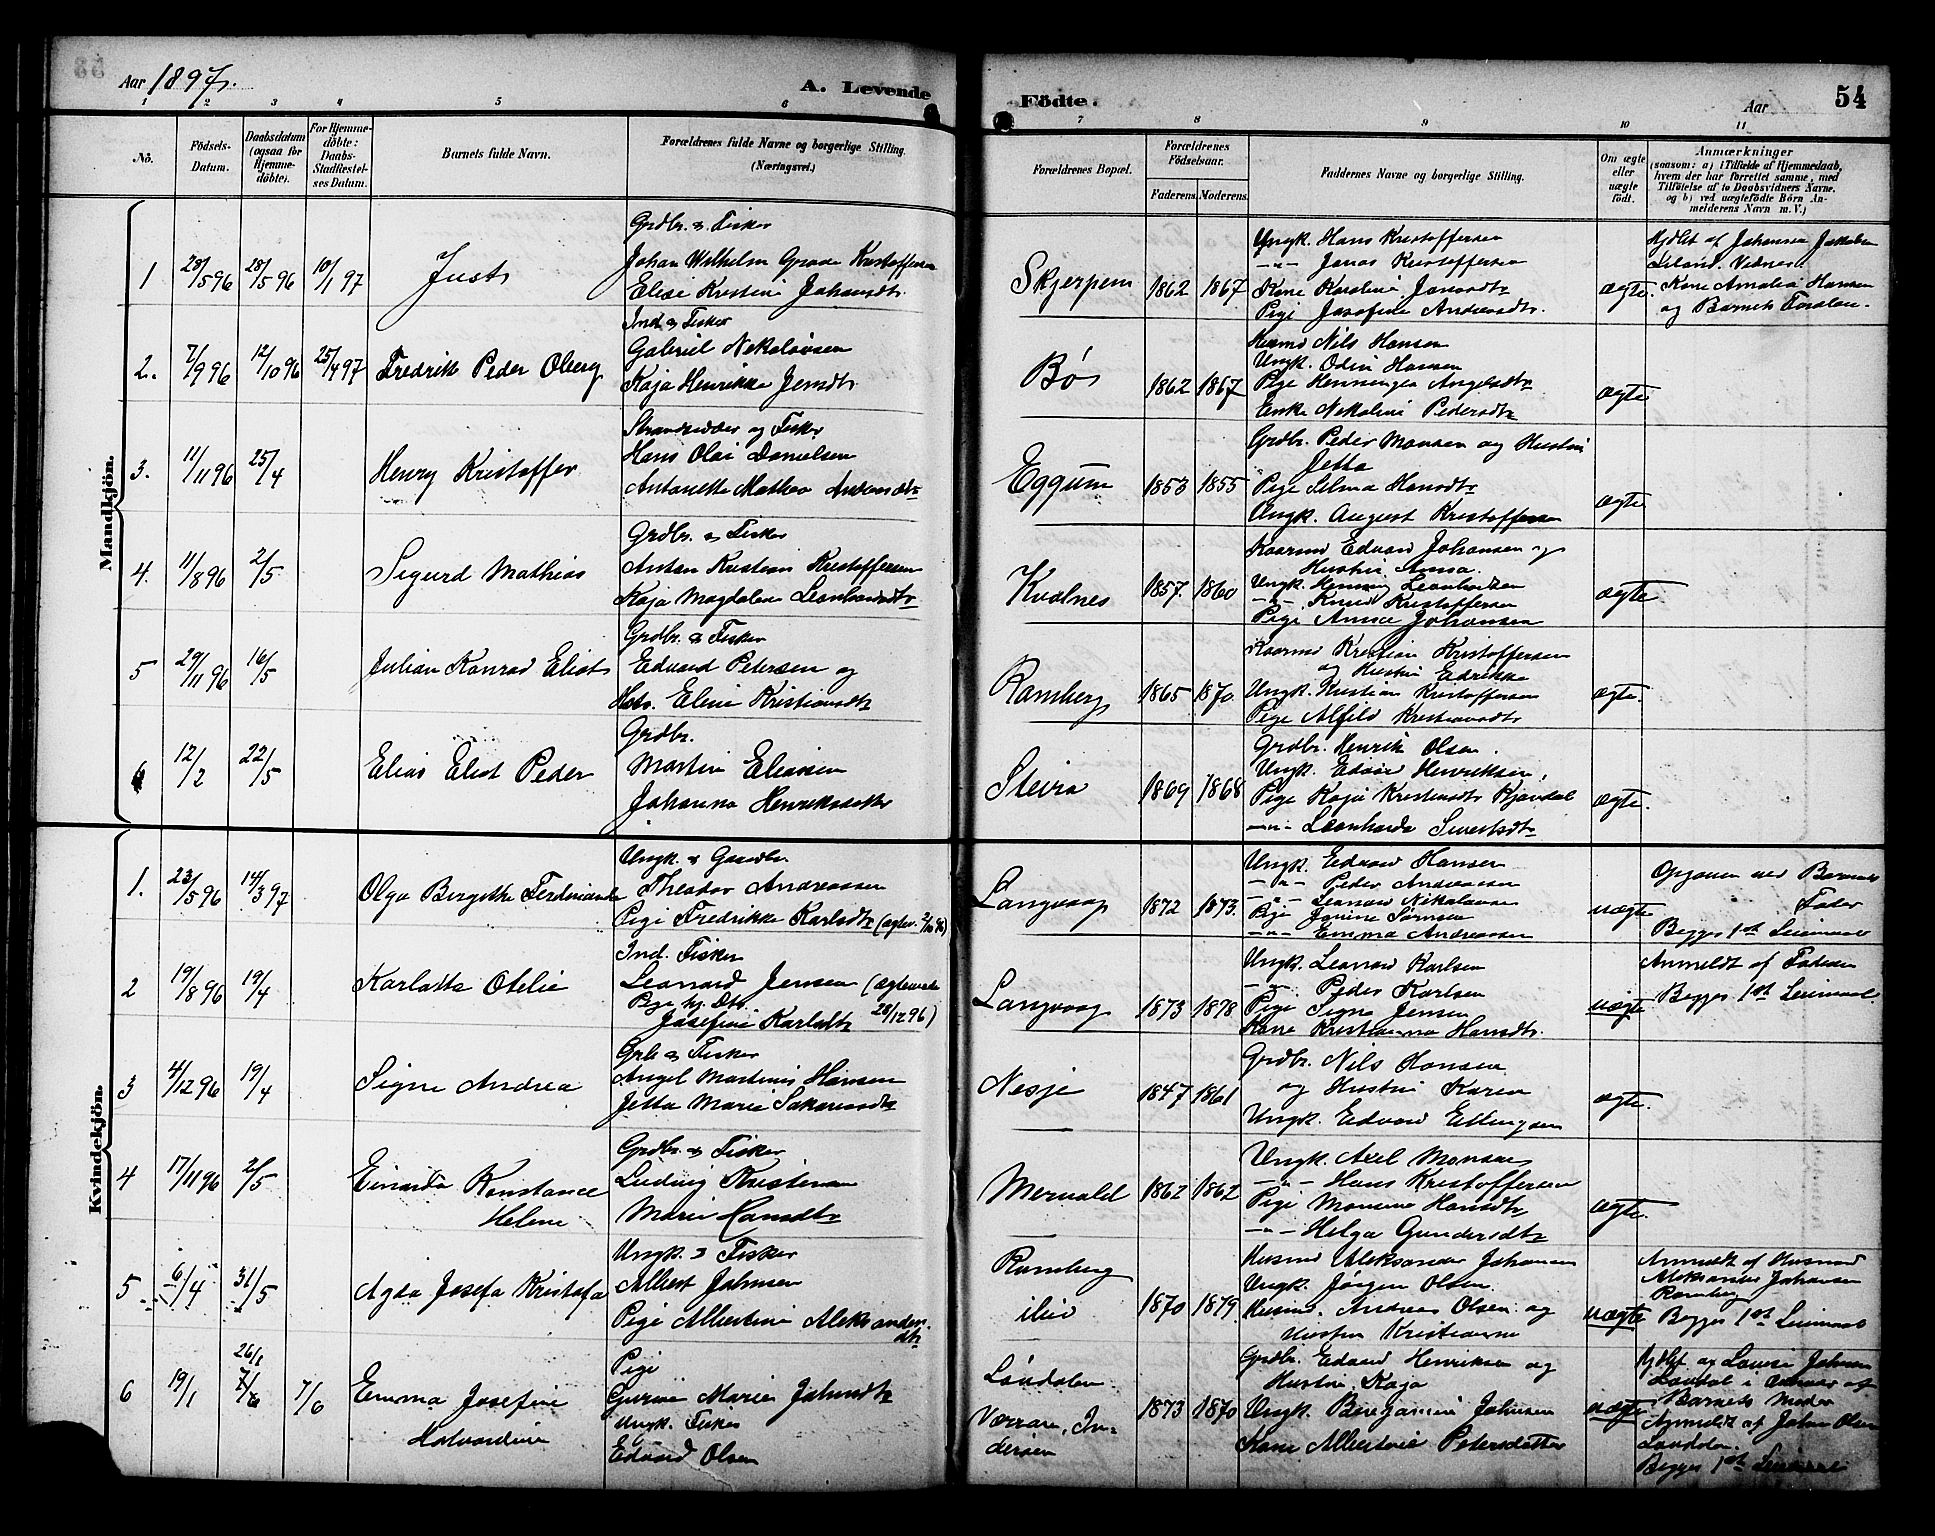 Aar 1897.
A. Levende
1 2 3 4 5 6
No.
Födsels-Datum.
Daabsdatum (ogsaa for Hjemme-döbte).
For Hjemme-döbte: Daabs-Stadfæstel-ses Datum.
Barnets fulde Navn.
Forældrenes fulde Navne og borgerlige Stilling. (Næringsvei.)
Födte.
Aar
54
7 8 9 10 11
Forældrenes Bopæl.
Forældrenes Födselsaar.
Faderens. Moderens.
Faddernes Navne og borgerlige Stilling.
Om ægte eller uægte födt.
Anmærkninger
(saasom: a) i Tilfælde af Hjemmedaab,
hvem der har forrettet samme, med
Tilföielse af to Daabsvidners Navne.
og b) ved uægtefödte Börn An-
melderens Navn m. V.)
Mandkjön.
1 28/5 96 28/5 96 10/1 97 Just
Grdbr. & Fisker
Johan Wilhelm Grade Kristoffersen
Elise Kristine Johansdtr.
Skjerpen 1862 1867
Ungk. Hans Kristoffersen
—"— Jonas Kristoffersen
Kone Karoline Jonsdtr
Pige Josefine Andreasdtr.
ægte.
Hjdbt af Johanna Jakobsen
Vidner:
Kone Amalia Hansen
og Barnets Forældre.
2. 7/9 96 12/10 96 25/4 97 Fredrik Peder Olberg
Ind. & Fisker
Gabriel Nikolaisen
Kaja Henrikke Jensdtr.
Bø 1862 1867
Husmd Nils Hansen
Ungk. Odin Hansen
Pige Henninga Angelsdtr
Enke Nekoline Pedersdtr
ægte
3. 11/11 96 25/4 Henry Kristoffer
Strandsidder og Fisker
Hans Olai Danielsen
Antonette Mathea Andreasdtr
Eggum 1853 1855
Grdbr. Peder Monsen og Hustru
Jetta
Pige Selma Hansdtr
Ungk. August Kristoffersen
ægte
4. 11/8 96 2/5 Sigurd Mathias
Grdbr. & Fisker
Anton Kristian Kristoffersen
Kaja Magdalena Leonhardsdtr
Kvalnes 1857. 1860
Kaarmd Edvard Johansen og
Hustru Anna.
Ungk. Henning Leonhardsen
—"— Knud Kristoffersen
Pige Anna Johansen
ægte.
5 29/11 96 16/5 Julian Konrad Eliot
Grdbr. & Fisker
Edvard Petersen og
Hstr. Eline Kristiansdtr
Ramberg 1865 1870.
Kaarmd Kristian Kristoffersen
og Hustru Edrikke
Ungk. Kristian Kristoffersen
Pige Alfild Kristiansdtr
ægte.
6 12/2 22/5 Elias Eliot Peder
Grdbr.
Martin Eliassen
Johanna Henriksdatter
Steira 1869 1868
Grdbr. Henrik Olsen.
Ungk. Edvard Henriksen,
Pige Kaja Kristensdtr Kjøndal
—"— Leonharda Sivertsdtr
ægte.
Kvindekjön.
1. 23/5 96 14/3 97 Olga Bergithe Ferdinande
Ungk. & Gaardbr.
Theodor Andreassen
Pige Fredrikke Karlsdtr (ægtev. 2/10 96)
Langvaag 1872 1873.
Ungk. Edvard Hansen
—"— Peder Andreassen
—"— Leonard Nikolaisen
Pige Janine Sørensen
—"— Emma Andreassen
uægte
Opgaven ved Barnets
Fader
Begges 1ste Leiermaal
2 19/8 96 19/4 Karlatta Otelie
Ind. Fisker
Leonard Jensen (ægteviede
Pige hj. Dtr. 28/12 96)
Josefine Karlsdtr
Langvaag 1873 1878
Ungk. Leonard Karlsen
—"— Peder Karlsen
Pige Signe Jensen
Kone Kristianna Hansdtr.
uægte
Anmeldt af Faderen
Begges 1ste Leiermaal
3 4/12 96 19/4 Signe Andrea
Grb & Fisker
Angel Martinus Hansen
Jetta Marie Sakariasdtr
Nesje 1847 1861
Grdbr. Nils Hansen
og Hustru Karen
Ungk. Edvard Ellingsen
ægte.
4 17/11 96 2/5 Einarda Konstance
Helene
Grdbr. & Fisker
Ludvig Kristensen
Marie Hansdtr
Mervold 1862 1862
Ungk. Axel Monsen
—"— Hans Kristoffersen
Pige Monsine Hansdtr
—"— Helga Gundersdtr
ægte.
5 6/4 31/5 Agda Josefa Kristofa
Ungk. & Fisker
Albert Johnsen
Pige Albertine Aleksanders-
dtr
Ramberg
1870 1879.
Husmd Aleksander Johansen
Ungk. Jørgen Olsen.
Husmd. Andreas Olsen og
Hustru Kristianne
uægte
Anmeldt af Husmand
Aleksander Johansen
Ramberg
Begges 1ste Leiermaal
6 19/1 26/1 7/6 7/6 Emma Josefine
Halvardine
Pige
Gurine Marie Johnsdtr
Ungk. Fisker
Edvard Olsen
Løvdalen
Værran, In-
derøen
1873 1870
Grdbr. Edvard Henriksen og
Hustru Kaja
Ungk. Benjamin Johnsen
Kone Albertine Petersdatter
uægte
Hjdbt af Lovise Johnsen
Løvdal i Nærvær af
Barnets Moder
Anmeldt af Johan Olsen
Løvdalen.
Begges 1ste Leiermaal